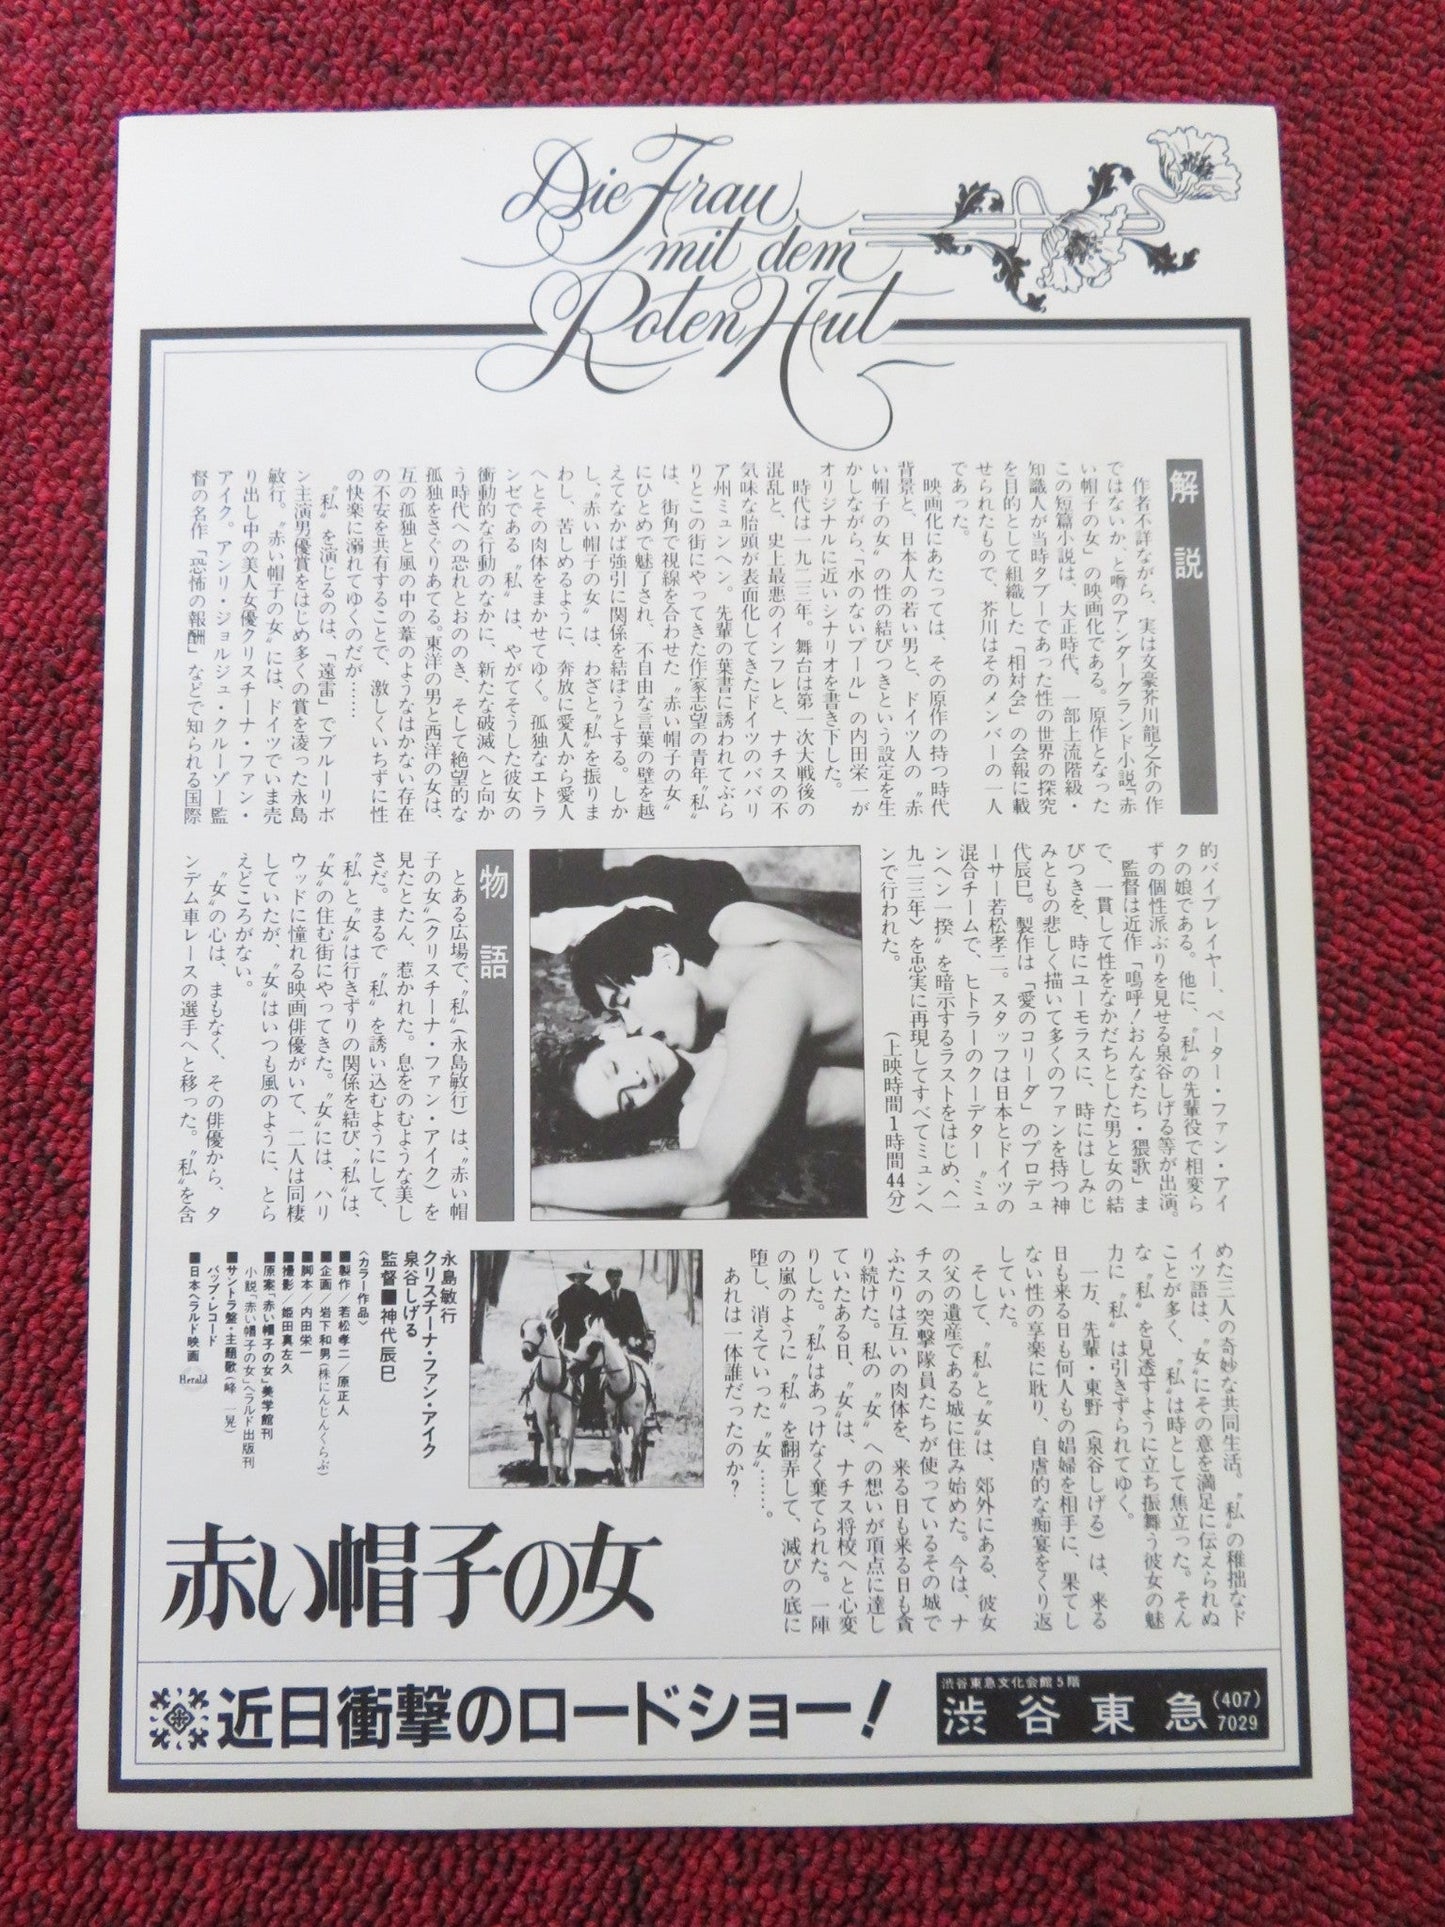 Die Frau
mit dem
Roten Hut
解説
作者不詳ながら、実は文豪芥川龍之介の作
ではないか、と噂のアンダーグランド小説「赤
い帽子の女」の映画化である。原作となった
この短篇小説は、大正時代、一部上流階級・
知識人が当時タブーであった性の世界の探究
を目的として組織した「相対会」の会報に載
せられたもので、芥川はそのメンバーの一人
であった。
映画化にあたっては、その原作の持つ時代
背景と、日本人の若い男と、ドイツ人の〝赤
い帽子の女〟の性の結びつきという設定を生
かしながら、「水のないプール」の内田栄一が
オリジナルに近いシナリオを書き下した。
時代は一九二三年。舞台は第一次大戦後の
混乱と、史上最悪のインフレと、ナチスの不
気味な胎頭が表面化してきたドイツのババリ
ア州ミュンヘン。先輩の葉書に誘われてぶら
りとこの街にやってきた作家志望の青年〝私〟
は、街角で視線を合わせた〝赤い帽子の女〟
にひとめで魅了され、不自由な言葉の壁を越
えてなかば強引に関係を結ぼうとする。しか
し、〝赤い帽子の女〟は、わざと〝私〟を振りま
わし、苦しめるように、奔放に愛人から愛人
へとその肉体をまかせてゆく。孤独なエトラ
ンゼである〝私〟は、やがてそうした彼女の
衝動的な行動のなかに、新たな破滅へと向か
う時代への恐れとおののき、そして絶望的な
孤独をさぐりあてる。東洋の男と西洋の女は、
互の孤独と風の中の葦のようなはかない存在
の不安を共有することで、激しくいちずに性
の快楽に溺れてゆくのだが……
〝私〟を演じるのは、「遠雷」でブルーリボ
ン主演男優賞をはじめ多くの賞を凌った永島
敏行。〝赤い帽子の女〟には、ドイツでいま売
り出し中の美人女優クリスチーナ・ファン・
アイク。アンリ・ジョルジュ・クルーゾー監
督の名作「恐怖の報酬」などで知られる国際
的バイプレイヤー、ペーター・ファン・アイ
クの娘である。他に、〝私〟の先輩役で相変ら
ずの個性派ぶりを見せる泉谷しげる等が出演。
監督は近作「嗚呼！おんなたち・猥歌」ま
で、一貫して性をなかだちとした男と女の結
びつきを、時にユーモラスに、時にはしみじ
みともの悲しく描いて多くのファンを持つ神
代辰巳。製作は「愛のコリーダ」のプロデュ
ーサー若松孝二。スタッフは日本とドイツの
混合チームで、ヒトラーのクーデター〝ミュ
ンヘン一揆〟を暗示するラストをはじめ、〈一
九二三年〉を忠実に再現してすべてミュンヘ
ンで行われた。
（上映時間1時間44分）
物語
とある広場で、〝私〟（永島敏行）は、〝赤い帽
子の女〟（クリスチーナ・ファン・アイク）を
見たとたん、惹かれた。息をのむような美し
さだ。まるで〝私〟を誘い込むようにして、
〝私〟と〝女〟は行きずりの関係を結び、〝私〟は、
〝女〟の住む街にやってきた。〝女〟には、ハリ
ウッドに憧れる映画俳優がいて、二人は同棲
していたが、〝女〟はいつも風のように、とら
えどころがない。
〝女〟の心は、まもなく、その俳優から、タ
ンデム車レースの選手へと移った。〝私〟を含
めた三人の奇妙な共同生活。〝私〟の稚拙なド
イツ語は、〝女〟にその意を満足に伝えられぬ
ことが多く、〝私〟は時として焦立った。そん
な〝私〟を見透すように立ち振舞う彼女の魅
力に〝私〟は引きずられてゆく。
一方、先輩・東野（泉谷しげる）は、来る
日も来る日も何人もの娼婦を相手に、果てし
ない性の享楽に耽り、自虐的な痴宴をくり返
していた。
そして、〝私〟と〝女〟は、郊外にある、彼女
の父の遺産である城に住み始めた。今は、ナ
チスの突撃隊員たちが使っているその城で
ふたりは互いの肉体を、来る日も来る日も貪
り続けた。私の〝女〟への想いが頂点に達し
ていたある日、〝女〟は、ナチス将校へと心変
りした。〝私〟はあっけなく棄てられた。一陣
の嵐のように〝私〟を翻弄して、滅びの底に
堕し、消えていった〝女〟……。
あれは一体誰だったのか？
永島敏行
クリスチーナ・ファン・アイク
泉谷しげる
監督■神代辰巳
〈カラー作品〉
■製作／若松孝二／原正人
■企画／岩下和男（株にんじんくらぶ）
■脚本／内田栄一
■撮影／姫田真左久
■原案「赤い帽子の女」美学館刊
小説「赤い帽子の女」ヘラルド出版刊
■サントラ盤・主題歌（峰 一晃）
バップ・レコード
■日本ヘラルド映画 Herald
赤い帽子の女
近日衝撃のロードショー！
渋谷東急文化会館5階
渋谷東急 (407) 7029